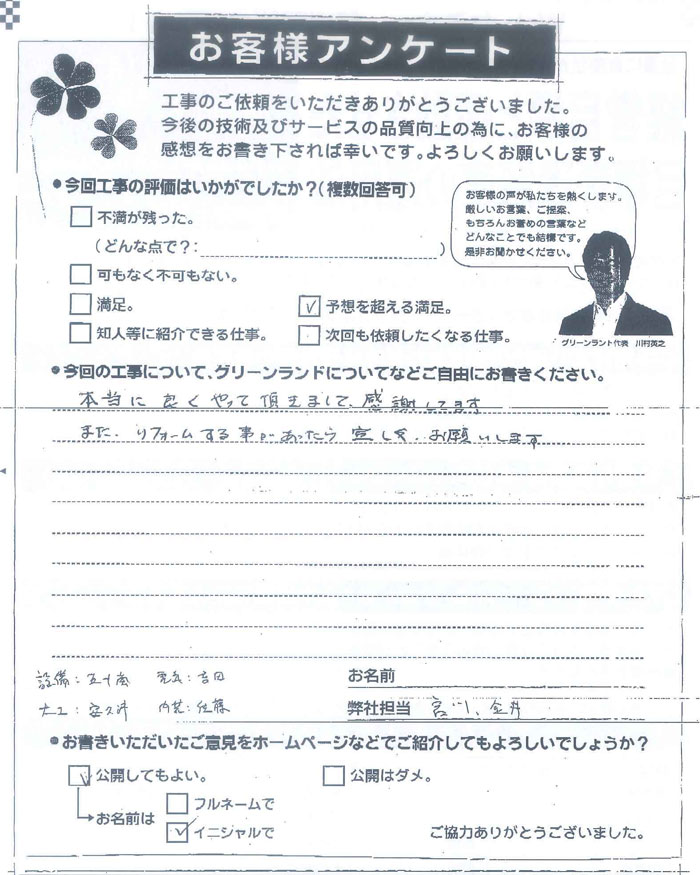 お客様アンケート
工事のご依頼をいただきありがとうございました。
今後の技術及びサービスの品質向上の為に、お客様の
感想をお書き下されば幸いです。よろしくお願いします。
●今回工事の評価はいかがでしたか?(複数回答可)
不満が残った。
(どんな点で?: )
可もなく不可もない。
満足。
予想を超える満足。
知人等に紹介できる仕事。
次回も依頼したくなる仕事。
お客様の声が私たちを熱くします。
厳しいお言葉、ご提案、
もちろんお誉めの言葉など
どんなことでも結構です。
是非お聞かせください。
グリーンランド代表 川村英之
●今回の工事について、グリーンランドについてなどご自由にお書きください。
本当に良くやって頂きまして、感謝してます
また、リフォームする事があったら宜しく、お願いします
設備:五十嵐 電気:吉田
大工: 内装:佐藤
お名前
弊社担当 宮川、金井
●お書きいただいたご意見をホームページなどでご紹介してもよろしいでしょうか?
公開してもよい。
公開はダメ。
お名前は
フルネームで
イニシャルで
ご協力ありがとうございました。